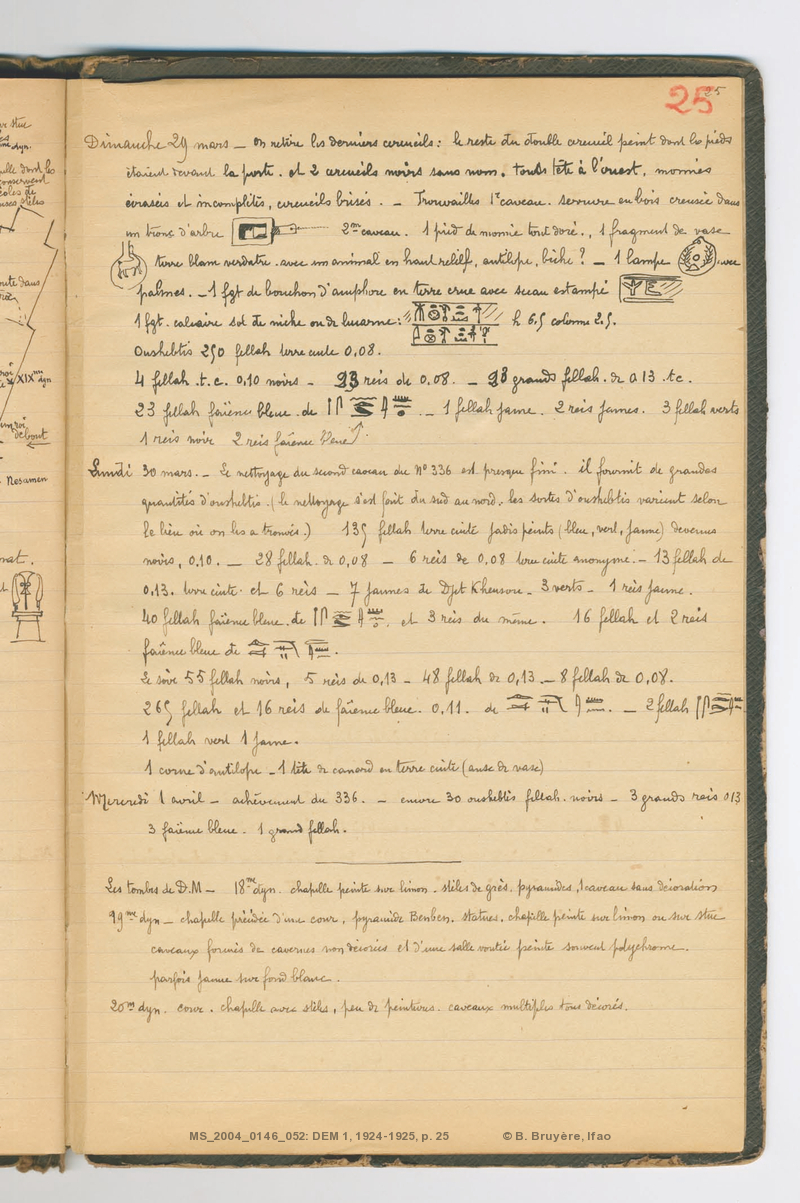 25
25
Dimanche 29 mars – on retire les derniers cercueils : le reste du double cercueil peint dont les pieds
étaient devant la porte. et 2 cercueils noirs sans nom. tous tête à l'ouest, momies
écrasées et incomplètes, cercueils brisés. – Trouvailles 1r caveau. serrure en bois creusée dans
un tronc d'arbre 2me caveau. 1 pied de momie tout doré., 1 fragment de vase
terre blanc verdatre avec un animal en haut relief, antilope, biche ? – 1 lampe avec
palmes. – 1 fgt de bouchon d'amphore en terre crue avec sceau estampé
1 fgt. calcaire sol de niche ou de lucarne : h 6.5 colonne 2.5.
Oushebtis 250 fellah terre cuite 0,08.
4 fellah .t.c. 0.10 noirs – 23 reis de 0.08. – 98 grands fellah. de 0.13 tc.
23 fellah faïence bleue. de – 1 fellah jaune. 2 reis jaunes. 3 fellah verts
1 reis noir 2 reis faïence bleue
Lundi 30 mars. – Le nettoyage du second caveau du No 336 est presque fini. il fournit de grandes
quantités d'oushebtis. (le nettoyage s'est fait du sud au nord. les sortes d'oushebtis varient selon
le lieu où on les a trouvés.) 135 fellah terre cuite jadis peints (bleu, vert, jaune) devenus
noirs, 0.10. – 28 fellah. de 0,08 – 6 reis de 0,08 terre cuite anonyme. – 13 fellah de
0.13. terre cuite. et 6 reis – 7 jaunes de Djet Khensou. 3 verts – 1 reis jaune.
40 fellah faïence bleue. de et 3 reis du même. 16 fellah et 2 reis
faïence bleue de
Le soir 55 fellah noirs, 5 reis de 0,13 – 48 fellah de 0,13. – 8 fellah de 0.08.
265 fellah et 16 reis de faïence bleue. 0.11. de – 2 fellah
1 fellah vert 1 jaune.
1 corne d'antilope – 1 tête de canard en terre cuite (anse de vase)
Mercredi 1 avril – achèvement du 336. – encore 30 oushebtis fellah. noirs – 3 grands reis 013
3 faïence bleue. 1 grand fellah.
Les tombes de D.M – 18me dyn. chapelle peinte sur limon. stèles de grès. pyramides, 1 caveau sans décoration
19me dyn – chapelle précédée d'une cour, pyramide Benben. statues. chapelle peinte sur limon ou sur stuc
caveaux formés de cavernes non décorées et d'une salle voutée peinte souvent polychrome.
parfois jaune sur fond blanc.
20me dyn. cour. chapelle avec stèles, peu de peintures. caveaux multiples tous décorés.
XIXme dyn
debout
Nesamen
MS_2004_0146_052: DEM 1, 1924-1925, p. 25 © B. Bruyère, Ifao